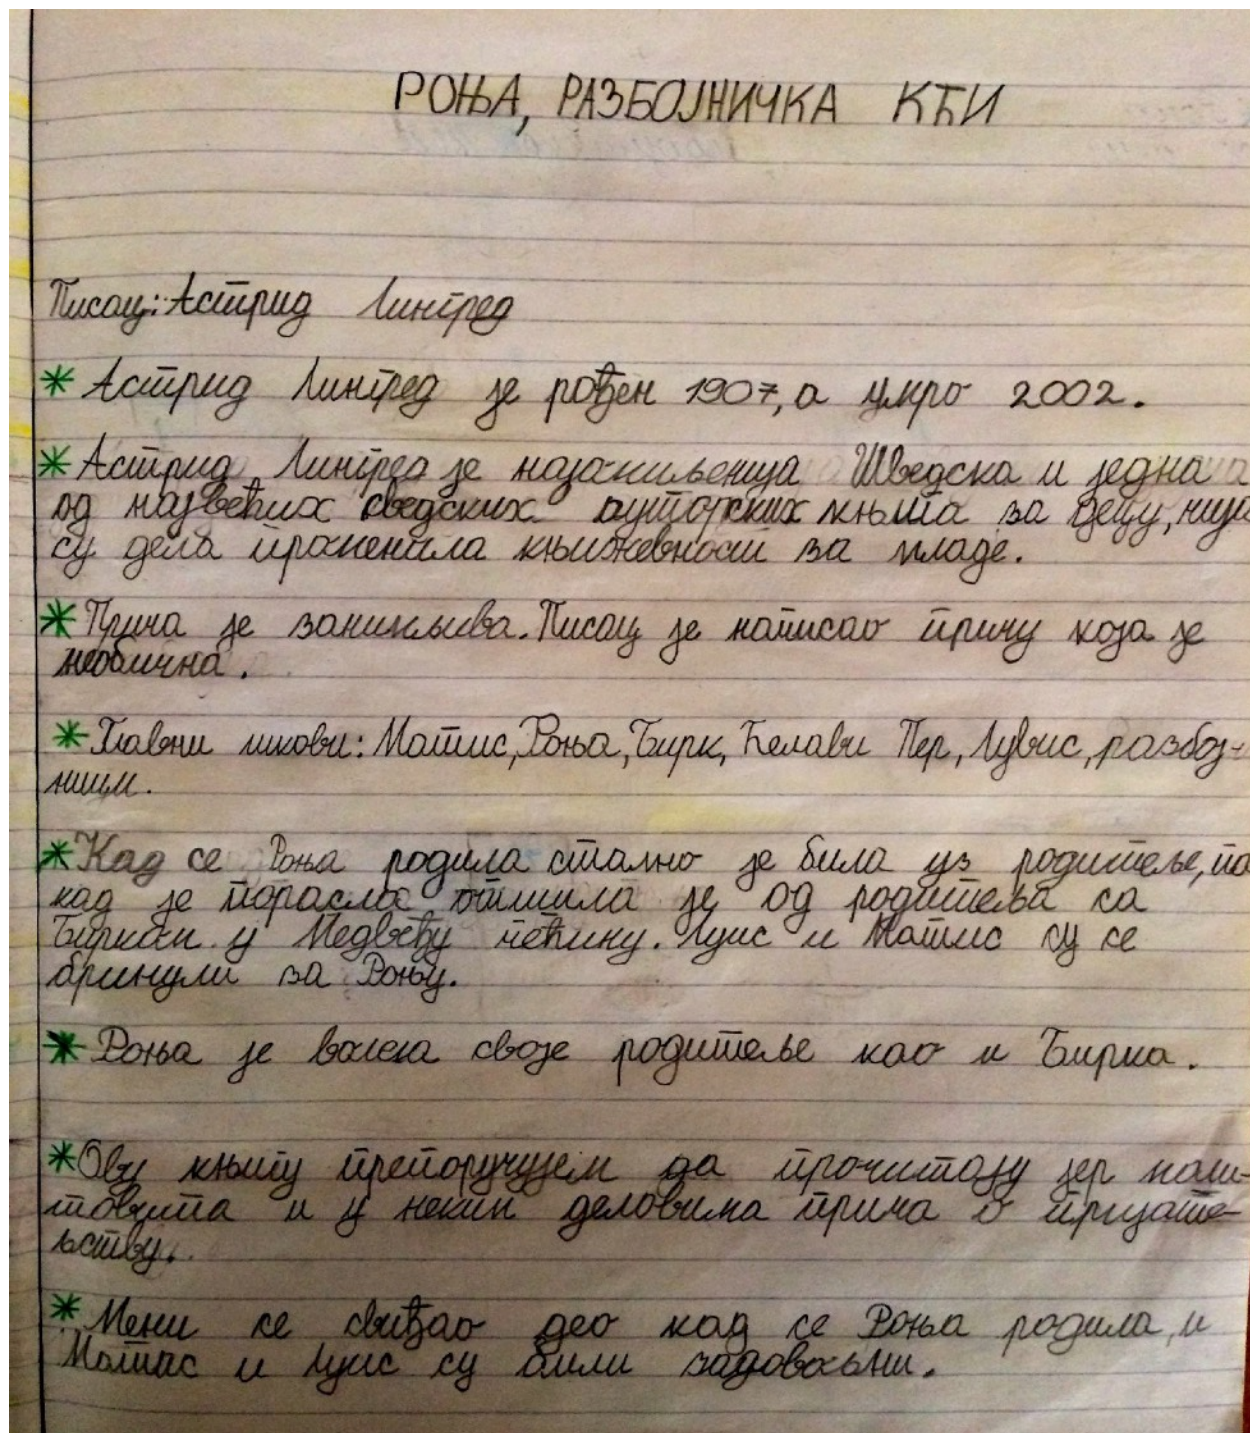 РОЊА, РАЗБОЈНИЧКА КЋИ
Писац: Астрид Лингред
* Астрид Лингред је рођен 1907, а умро 2002.
* Астрид Лингред је Шведска и једна
од највећих сведских ауторских књига за децу, чија
су дела променила књижевност за младе.
* Прича је занимљива. Писац је написао причу која је
необична.
* Главни ликови: Матис, Роња, Бирк, Ћелави Пер, Лувис, разбој-
ници.
* Кад се Роња родила стално је била уз родитеље, па
кад је порасла отишла је од родитеља са
Бирком у Медвеђу пећину. Луис и Матис су се
бринули за Роњу.
* Роња је волела своје родитеље као и Бирка.
* Ову књигу препоручујем да прочитају јер маш-
товита и у неким деловима прича о пријате-
љству.
* Мени се свиђао део кад се Роња родила, и
Матис и Луис су били задовољни.